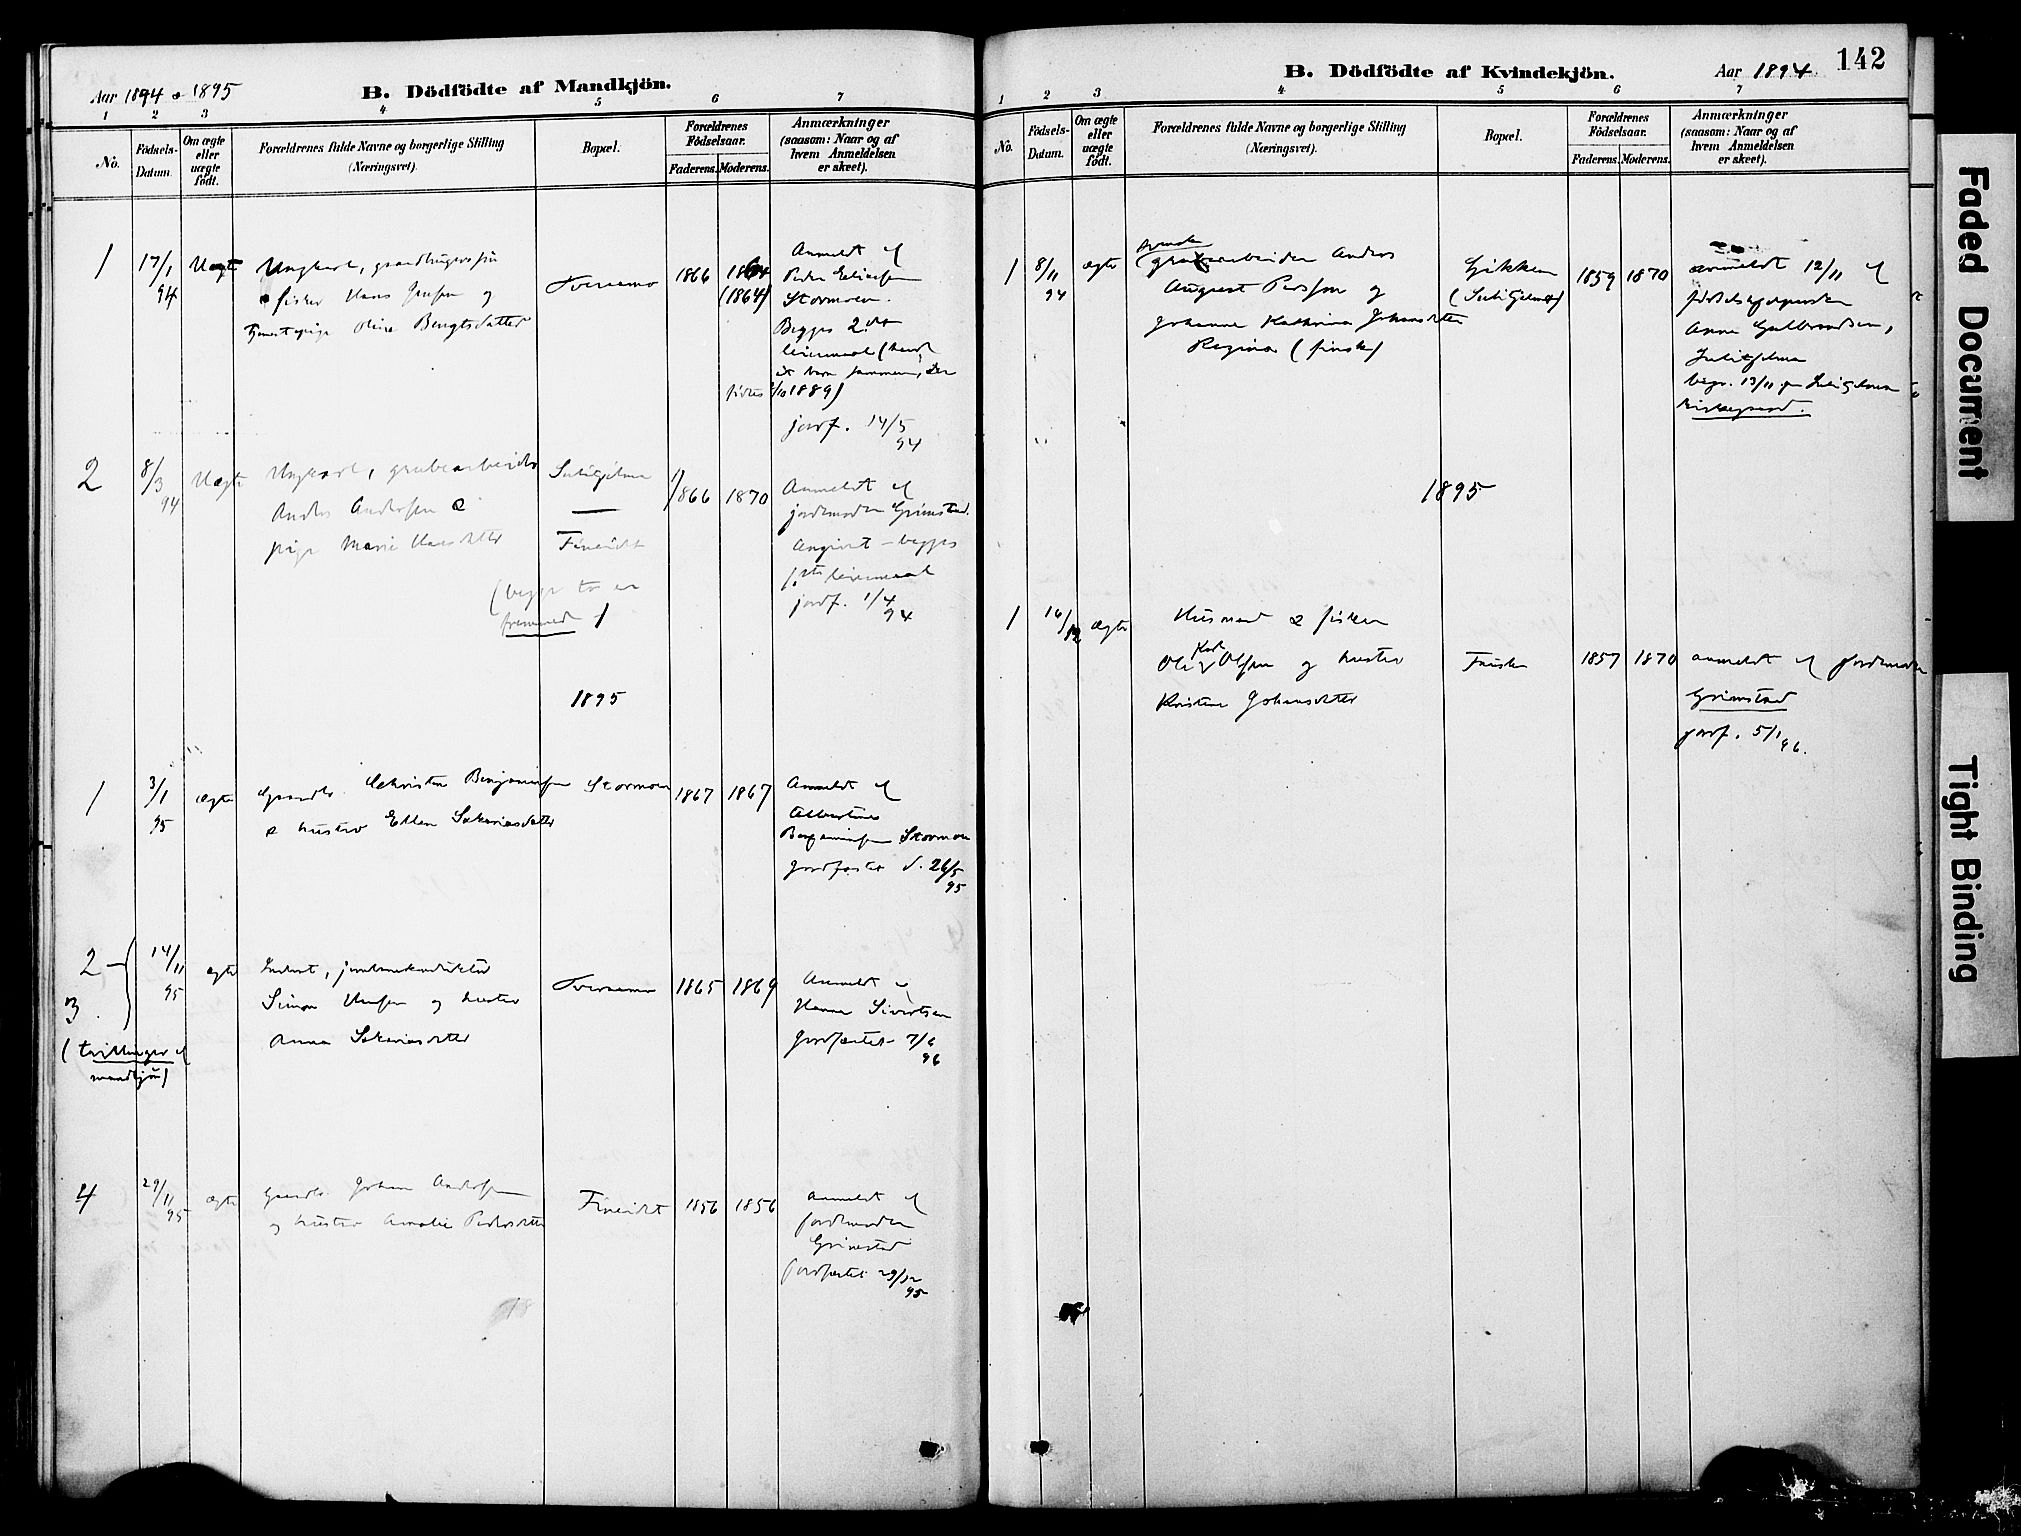 Aar 1894 & 1895
B. Dödfödte af Mandkjön.
1 2 3 4 5 6 7
No.
Födsels-Datum.
Om ægte eller uægte födt.
Forældrenes fulde Navne og borgerlige Stilling (Næringsvei).
Bopæl.
Forældrenes Födselsaar.
Faderens. Moderens.
Anmærkninger (saasom: Naar og af hvem Anmeldelsen er skeet).
1 17/1 94 Uægte
Ungkarl, gaardbrugersøn
& fisker Hans Jensen og
Tjenestepige Oline Bengtsdatter
Tveraamo
1866 1864
(1864)
Anmeldt af
Peder Eliassen
Stormoen.
Begges 2det
leiermaal (havt
et barn sammen, der
fødtes 1/10 1889)
jordf. 14/5 94
2 8/3 94 Uægte
Ungkarl, grubearbeider
Anders Andersen &
pige Marie Hansdatter
Sulitjelma
—
Fineidet
(begge to er
fremmed)
1866 1870
Anmeldt af
jordemoder Grimstad.
Angivet – begges
1ste leiermaal
jordf. 1/4 94
1895
1 3/1 95 ægte
Gaardbr. Sakarias Benjaminsen
& hustru Ellen Sakariasdatter
Stormoen
1867 1867
Anmeldt af
Albertine
Benjaminsen Stormoen
Jordfæstet d. 26/5 95
2
3
(tvillinger af
mandkjøn)
14/11 95 ægte
Simon Hansen og hustru
Anna Sakariasdatter
Tveraamo
1865 1869
Anmeldt af
Hanna Sivertsen
Jordfæstet 7/6 96
4 29/11 95 ægte
Gaardbr. Johan Andersen
og hustru Amalie Pedersdatter
Fineidet
1856 1856
Anmeldt af
jordemoder
Grimstad
jordfæstet 29/12 95
142
B. Dödfödte af Kvindekjön.
Aar 1894.
1 2 3 4 5 6 7
No.
Födsels-Datum.
Om ægte eller uægte födt.
Forældrenes fulde Navne og borgerlige Stilling (Næringsvei).
Bopæl.
Forældrenes Födselsaar.
Faderens. Moderens.
Anmærkninger (saasom: Naar og af hvem Anmeldelsen er skeet).
1 8/11 94 ægte
svensk
grubearbeider Anders
August Persson og
Johanne Kathrina Johansdatter
Regina (finsk)
Gikken
(Sulitjelma)
1859 1870
anmeldt 12/11 af
fødselshjelpersken
Anna Gulbrandsen,
Sulitjelma
begr. 13/11 paa Sulitjelma
kirkegaard.
1895
1 16/12 ægte
Husmand & fisker
Ole Kar. Olsen og hustru
Kristine Johansdatter
Fauske
1857 1870
anmeldt af jordemoder
Grimstad
jordf. 5/1 96.
Faded Document
Tight Binding